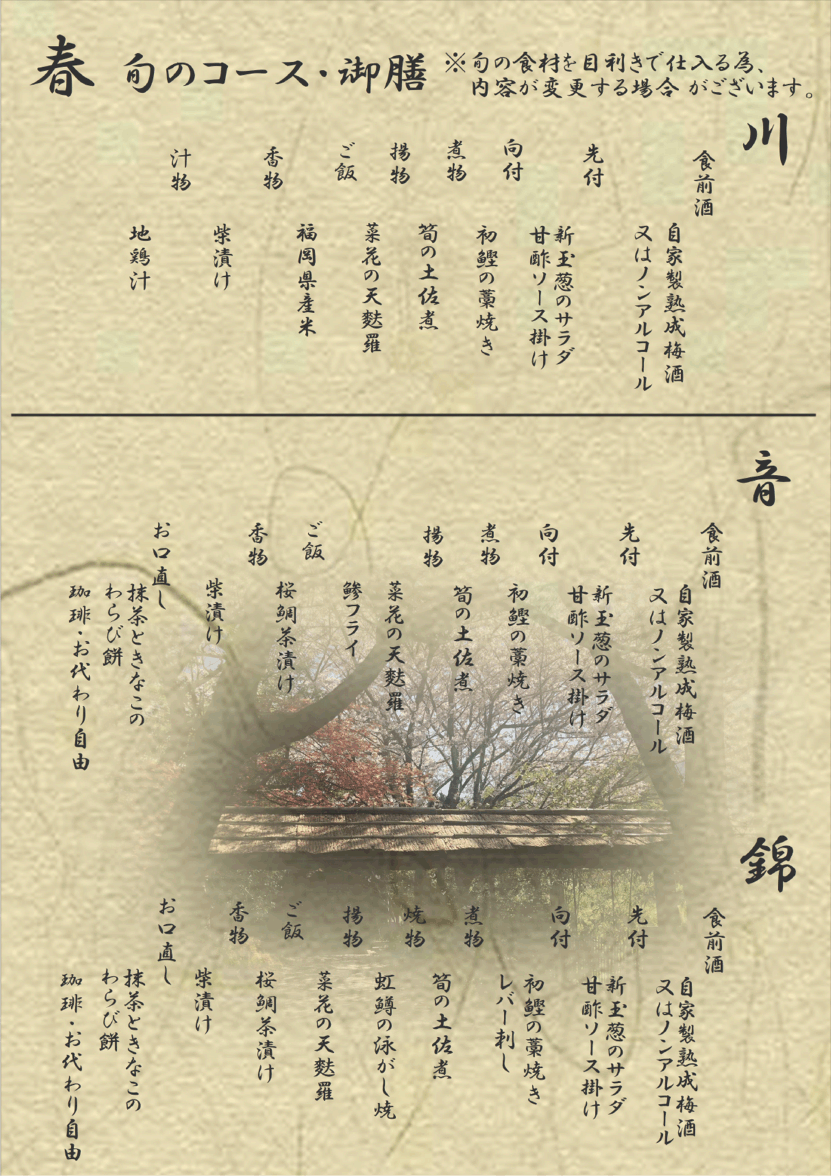 春 旬のコース・御膳
※旬の食材を目利きで仕入る為、
内容が変更する場合 がございます。
川
食前酒
自家製熟成梅酒
又はノンアルコール
先付
新玉葱のサラダ
甘酢ソース掛け
向付
初鰹の藁焼き
煮物
筍の土佐煮
揚物
菜花の天麩羅
ご飯
福岡県産米
香物
柴漬け
汁物
地鶏汁
音
食前酒
自家製熟成梅酒
又はノンアルコール
先付
新玉葱のサラダ
甘酢ソース掛け
向付
初鰹の藁焼き
煮物
筍の土佐煮
揚物
菜花の天麩羅
鯵フライ
ご飯
桜鯛茶漬け
香物
柴漬け
お口直し
抹茶ときなこの
わらび餅
珈琲・お代わり自由
錦
食前酒
自家製熟成梅酒
又はノンアルコール
先付
新玉葱のサラダ
甘酢ソース掛け
向付
初鰹の藁焼き
レバー刺し
煮物
筍の土佐煮
焼物
虹鱒の泳がし焼
揚物
菜花の天麩羅
ご飯
桜鯛茶漬け
香物
柴漬け
お口直し
抹茶ときなこの
わらび餅
珈琲・お代わり自由